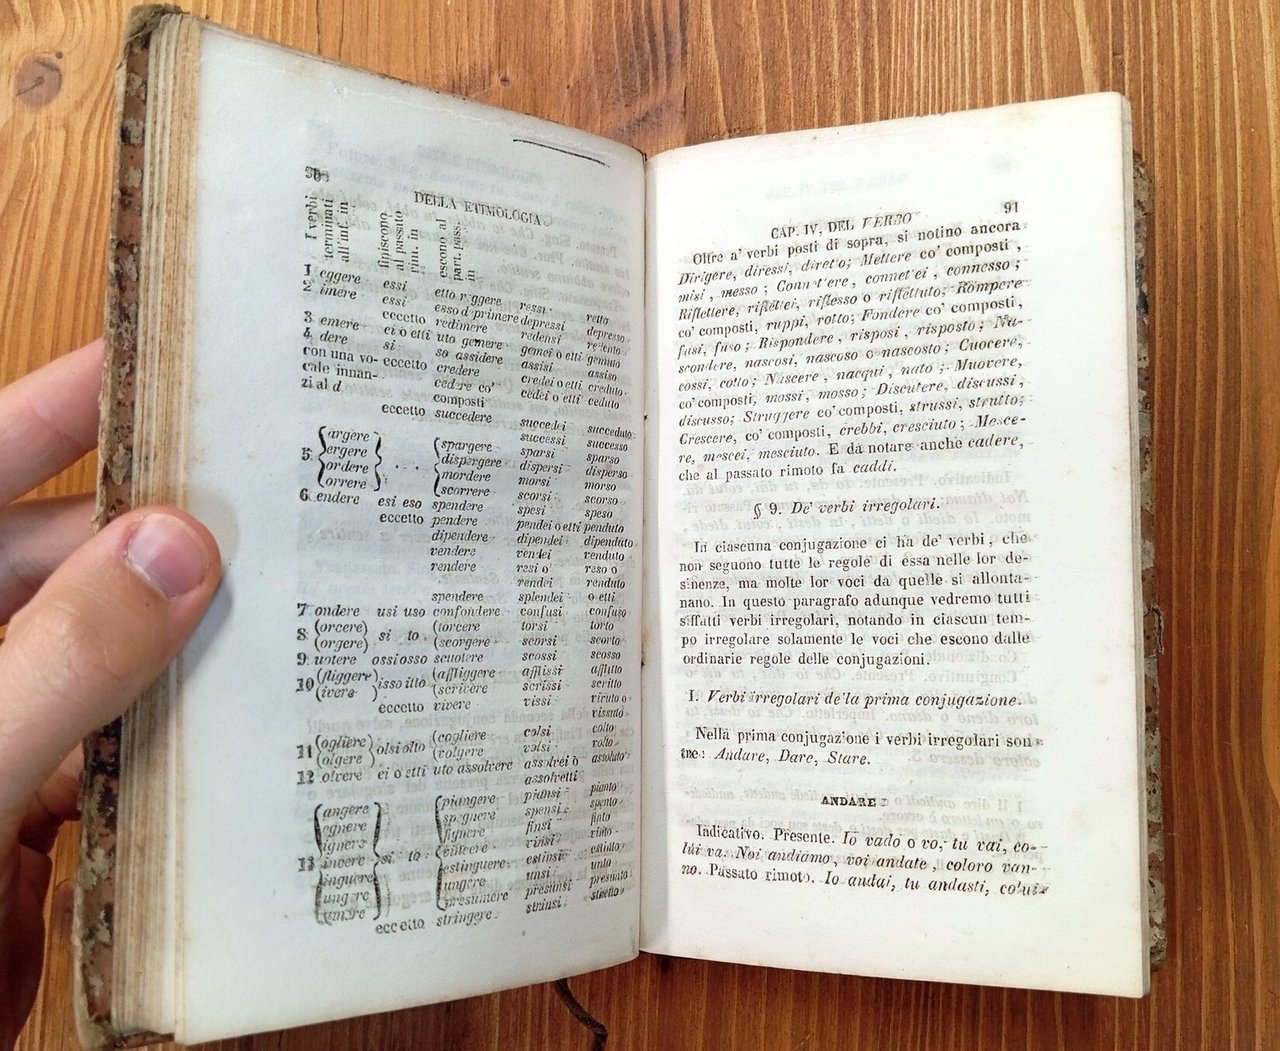 DELLA ETIMOLOGIA
I verbi terminati all'inf. in
finiscono al passato rim. in
escono al part. pass. in
1 eggere essi etto r ggere ressi retto
2 imere essi esso d primere depressi depresso
eccetto redimere redensi redento
3 emere ei o etti uto gemere gemei o etti gemuto
4 dere si so assidere assisi assiso
con una vo- eccetto credere credei o etti creduto
cale innan- cedere co' cedei o etti ceduto
zi al d composti
eccetto succedere succedei succeduto
successi successo
5 argere spargere sparsi sparso
ergere dispergere dispersi disperso
ordere mordere morsi morso
orrere scorrere scorsi scorso
6 endere esi eso spendere spesi speso
eccetto pendere pendei o etti penduto
dipendere dipendei dipenduto
vendere vendei venduto
rendere resi o reso o
rendei renduto
spendere splendei o etti
7 ondere usi uso confondere confusi confuso
8 (orcere) si to (torcere torsi torto
(orgere) (scorgere scorsi scorto
9 uotere ossi osso scuotere scossi scosso
10 (fliggere) isso itto (affliggere afflissi afflitto
(ivere (scrivere scrissi scritto
eccetto vivere vissi vivuto o
vissuto
11 (ogliere) olsi olto (cogliere colsi colto
(olgere (volgere volsi volto
12 olvere ei o etti uto assolvere assolvei o assoluto
assolvetti
angere piangere piansi pianto
egnere spegnere spensi spento
ignere fignere finsi finto
13 incere si to vincere vinsi vinto
inguere estinguere estinsi estinto
ungere ungere unsi unto
umere presumere presunsi presunto
eccetto stringere strinsi stretto
CAP. IV, DEL VERBO 91
Oltre a' verbi posti di sopra, si notino ancora
Dirigere, diressi, diretto; Mettere co' composti,
misi, messo; Connettere, connettei, connesso;
Riflettere, riflettei, riflesso o riflettuto; Rompere
co' composti, ruppi, rotto; Fondere co' composti,
fusi, fuso; Rispondere, risposi, risposto; Na-
scondere, nascosi, nascoso o nascosto; Cuocere,
cossi, cotto; Nascere, nacqui, nato; Muovere,
co' composti, mossi, mosso; Discutere, discussi,
discusso; Struggere co' composti, strussi, strutto;
Crescere, co' composti, crebbi, cresciuto; Mesce-
re, mescei, mesciuto. E da notare anche cadere,
che al passato rimoto fa caddi.
§ 9. De' verbi irregolari.
In ciascuna conjugazione ci ha de' verbi, che
non seguono tutte le regole di essa nelle lor de-
sinenze, ma molte lor voci da quelle si allonta-
nano. In questo paragrafo adunque vedremo tutti
siffatti verbi irregolari, notando in ciascun tem-
po irregolare solamente le voci che escono dalle
ordinarie regole delle conjugazioni.
I. Verbi irregolari de'la prima conjugazione.
Nella prima conjugazione i verbi irregolari son
tre: Andare, Dare, Stare.
ANDARE
Indicativo. Presente. Io vado o vo, tu vai, co-
lui va. Noi andiamo, voi andate, coloro van-
no. Passato rimoto. Io andai, tu andasti, colui